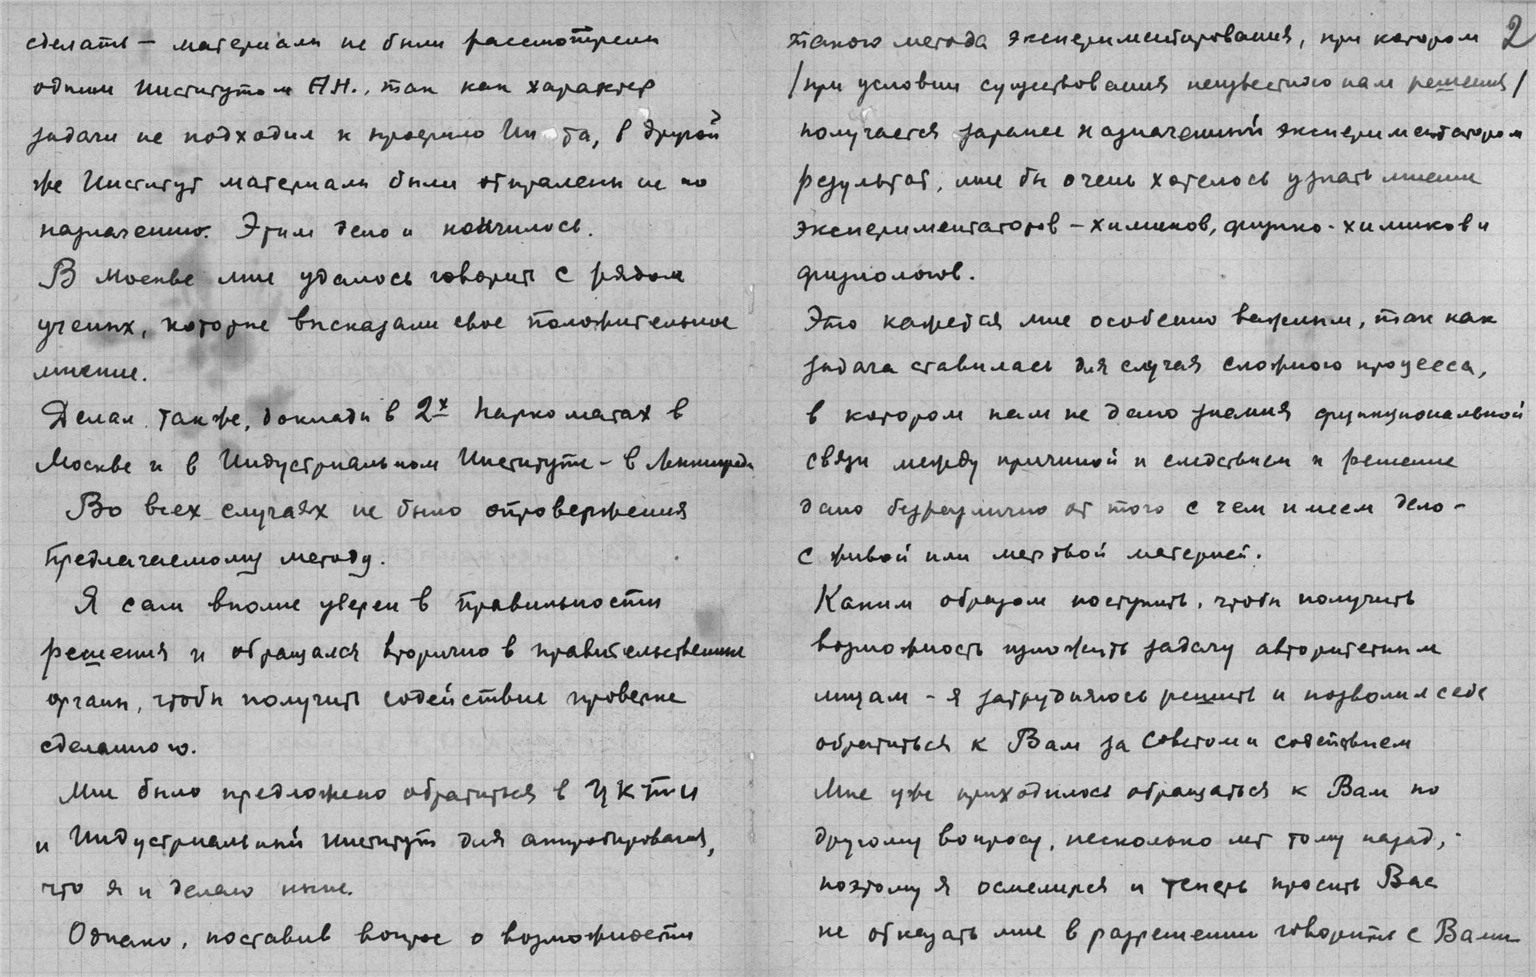 сделать – материалы не были рассмотрены
одним Институтом А.Н., так как характер
задачи не подходил к профилю Ин-та, в другой
же Институт материалы были отправлены не по
назначению. Этим дело и кончилось.
В Москве мне удалось говорить с рядом
ученых, которые высказали свое положительное
мнение.
Делал также, доклады в 2х Наркоматах в
Москве и в Индустриальном Институте – в Ленинграде
Во всех случаях не было опровержения
предлагаемому методу.
Я сам вполне уверен в правильности
решения и обращался вторично в правительственные
органы, чтобы получить содействие проверке
сделанного.
Мне было предложено обратиться в ЦКТИ
и Индустриальный институт для апробирования,
что я и делаю ныне.
Однако, поставив вопрос о возможности
2
такого метода экспериментирования, при котором
/при условии существования неизвестного нам решения/
получается заранее назначенный экспериментатором
результат, мне бы очень хотелось узнать мнение
экспериментаторов – химиков, физико-химиков и
физиологов.
Это кажется мне особенно важным, так как
задача ставилась для случая сложного процесса,
в котором нам не дано знания функциональной
связи между причиной и следствием и решение
дано безразлично от того с чем имеем дело –
с живой или мертвой материей.
Каким образом поступить, чтобы получить
возможность изложить задачу авторитетным
лицам – я затрудняюсь решить и позволил себе
обратиться к Вам за советом и содействием
Мне уже приходилось обращаться к Вам по
другому вопросу, несколько лет тому назад,
поэтому я осмелился и теперь просить Вас
не отказать мне в разрешении говорить с Вами